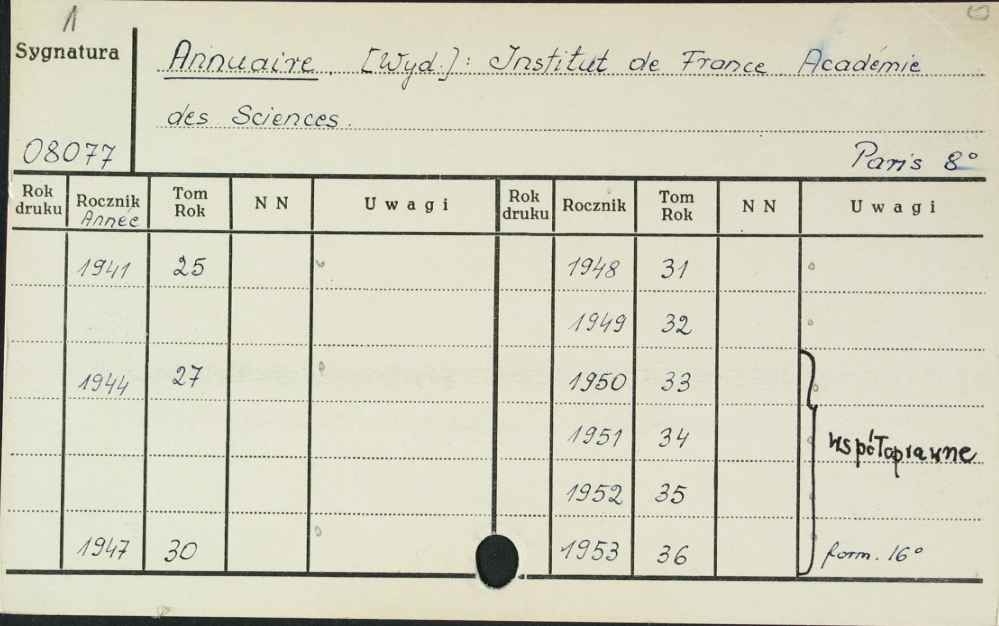 1
Sygnatura
Annuaire. [Wyd.]: Institut de France Académie
des Sciences.
08077
Paris 8°
Rok druku Rocznik Année Tom Rok NN Uwagi Rok druku Rocznik Tom Rok NN Uwagi
1941 25 1948 31
1949 32
1944 27 1950 33
1951 34 współoprawne
1952 35
1947 30 1953 36 form. 16°